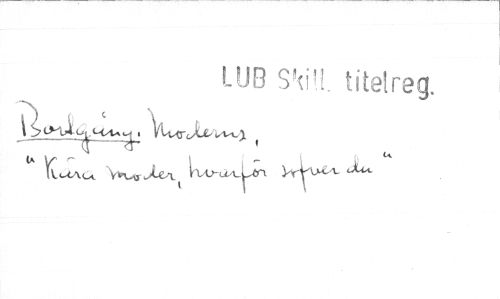 LUB Skill. titelreg.
Bortgång. Moderns,
"Kära moder, hvarför sofver du"